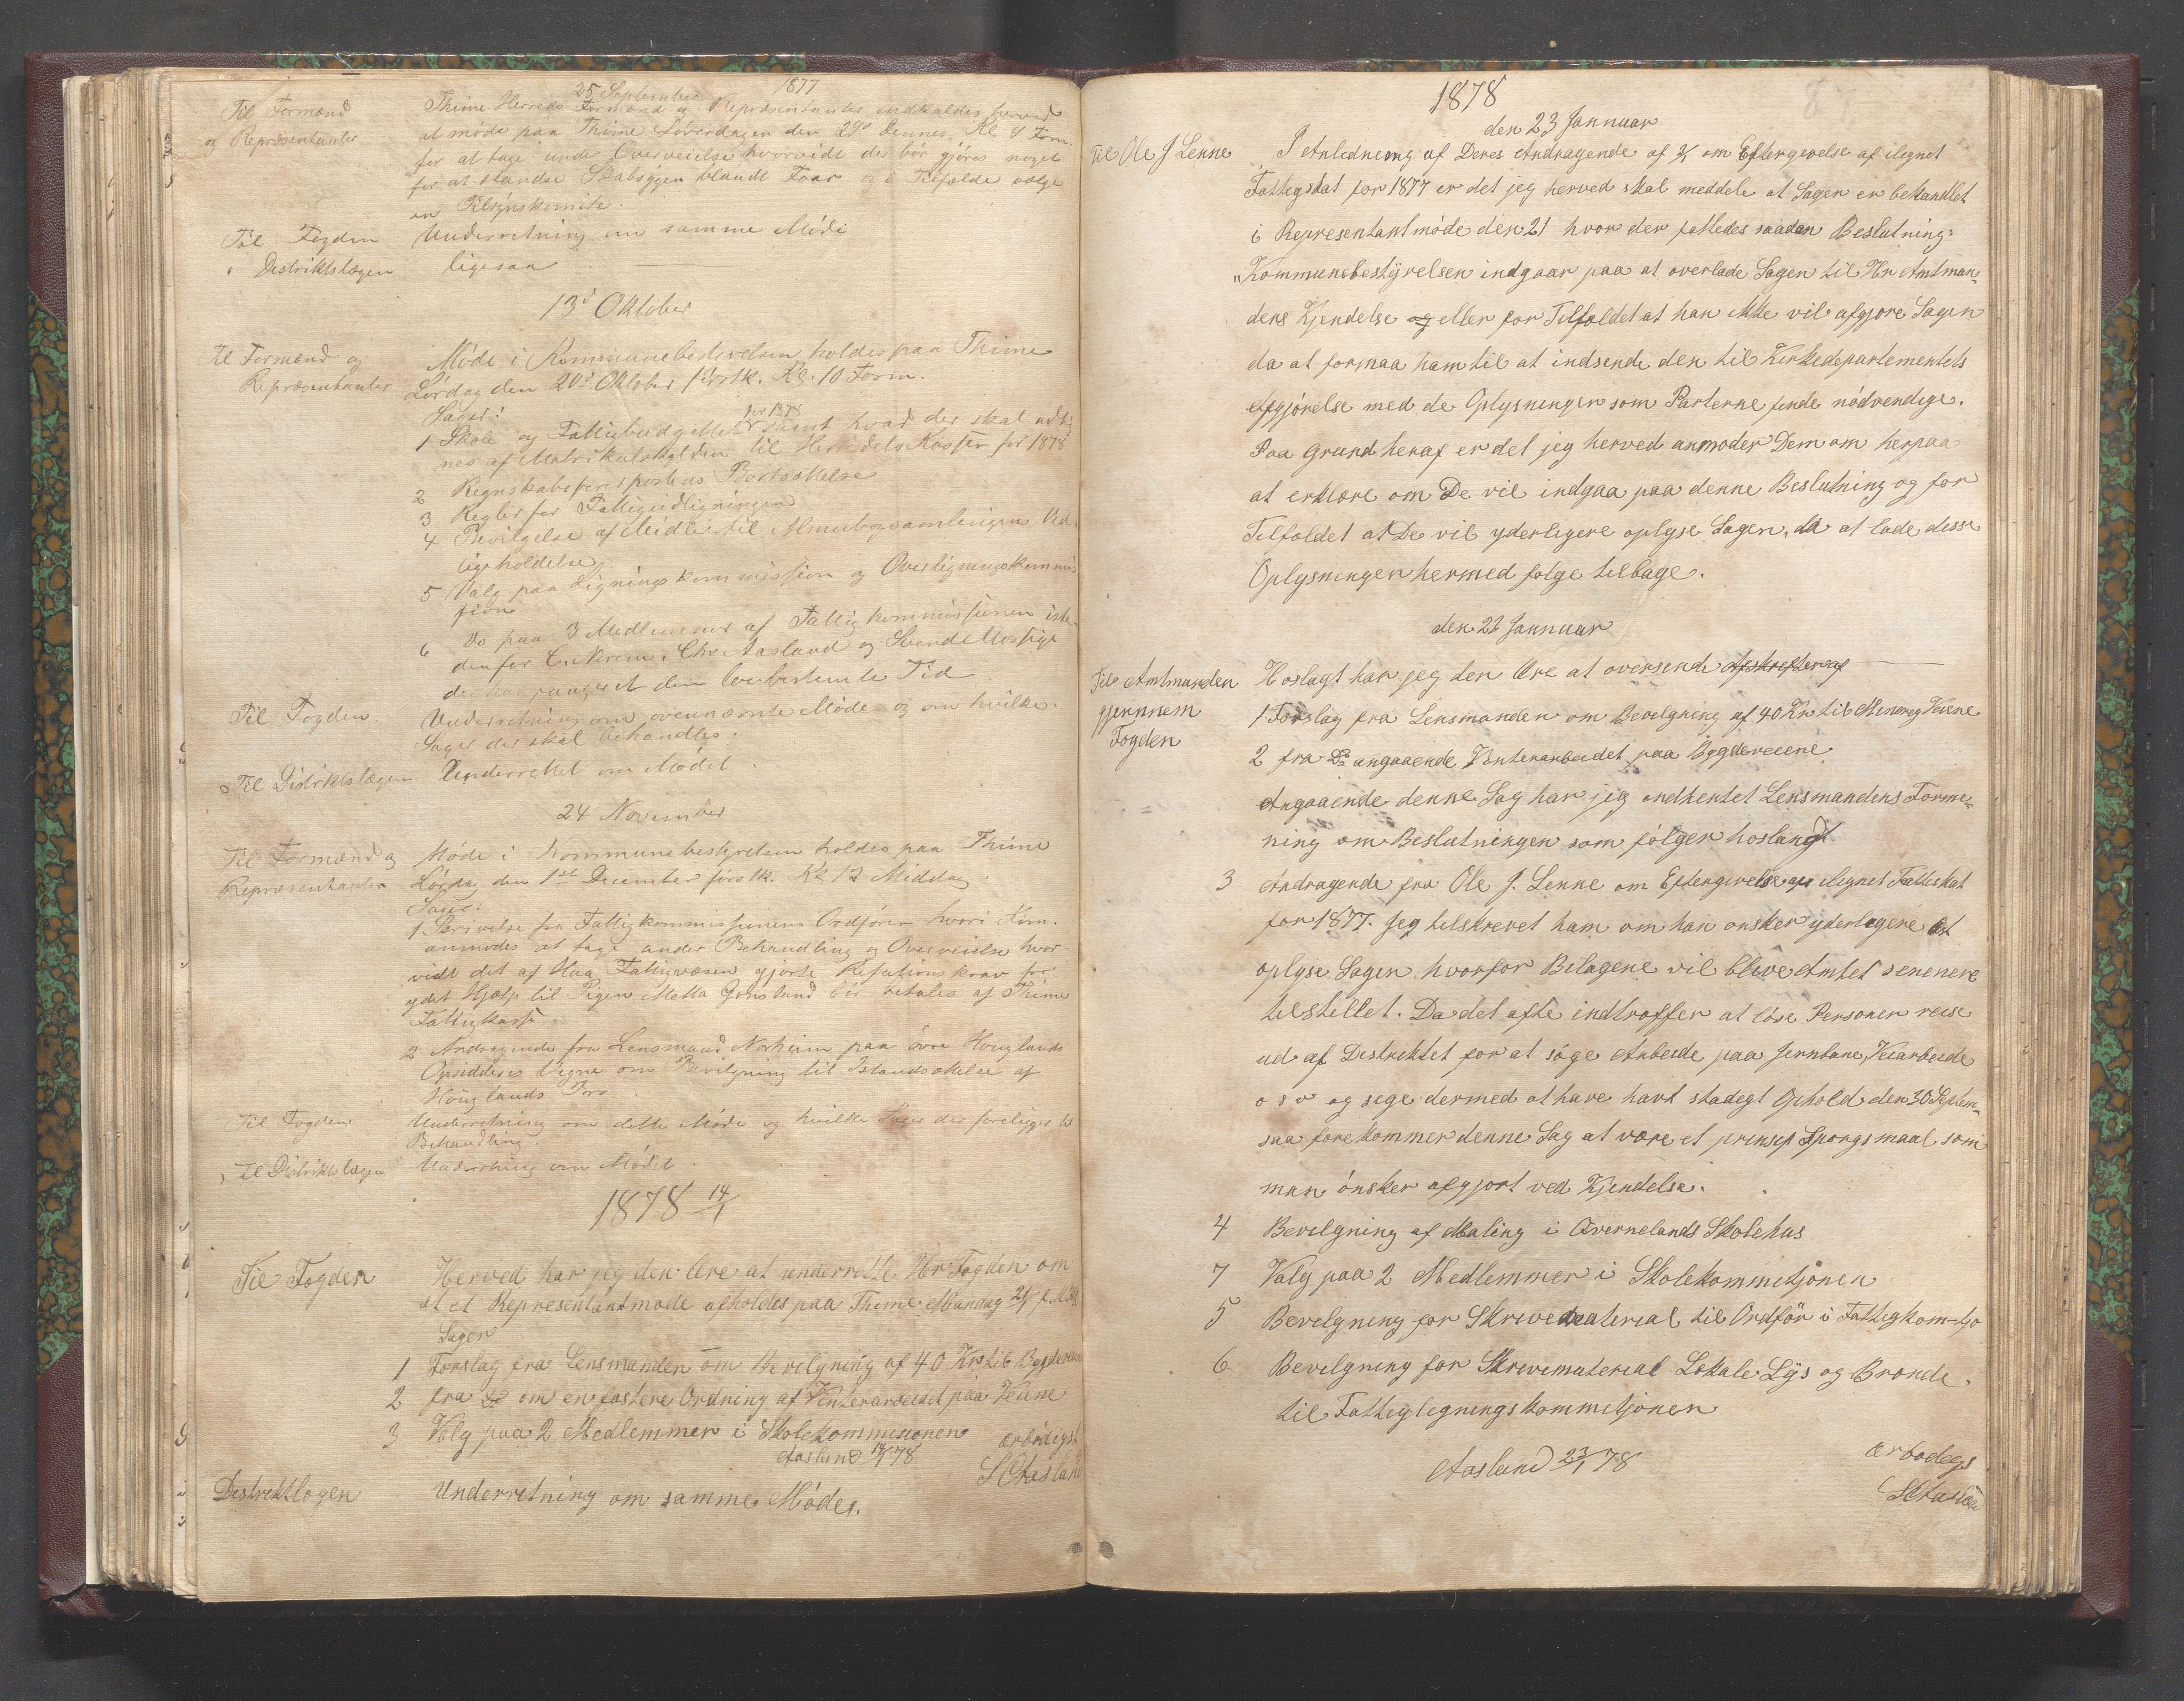 25 September 1877
Til Formænd
og Repræsentanter
Thime Herreds Formænd og Repræsentanter indkaldes herved
at møde paa Thime Løverdagen den 29de dennes Kl 9 Form.
for at tage under Overveielse hvorvidt der bör gjöres noget
for at standse Skabsygen blandt Faar og i Tilfælde vælge
en Tilsynskomite.
Til Fogden Underretning om samme Möde
" Distriktslægen ligesaa
13de Oktober
Til Formænd og
Repræsentanter
Møde i Kommunebestyrelsen holdes paa Thime
Lördag den 20de Oktober förstk. Kl. 10 Form.
Sager:
1 Skole og Fattigbudgettet for 1878 samt hvad der skal udlig
nes af Matrikulskylden til Herredets Kasser for 1878
2 Regnskabsførerpostens Bortsættelse
3 Regler for Fattigudligningen
4 Bevilgelse af Midler til Almuebogsamlingens Ved-
ligeholdelse
5 Valg paa Ligningskommission og Overligningskommis
sion
6 Do paa 3 Medlemmer af Fattigkommissionen iste-
denfor C. Njærem, Chr Aasland og Svend Mossige
der har fungeret den lovbestemte Tid
Til Fogden Underretning om ovennævnte Møde og om hvilke
Sager der skal behandles.
Til Distriktslægen Underrettet om Mødet.
24 November
Til Formænd og
Repræsentanter
Møde i Kommunebestyrelsen holdes paa Thime
Lördag den 1ste December förstk. Kl 12 Middag
Sager:
1 Skrivelse fra Fattigkommissionens Ordförer hvori Kom.
anmodes at tage under Behandling og Overveielse hvor-
vidt det af Haa Fattigvæsen gjorte Refutionskrav for
ydet Hjælp til Pigen Metta bör betales af Thime
Fattigkasse.
2 Andragende fra Lensmand Norheim paa övre Höilands
Opsidderes Vegne om Bevilgning til Istandsættelse af
Höiglands Bro
Til Fogden Underretning om dette Møde og hvilke Sager der foreligger til
Behandling.
Til Distriktslægen Underretning om Mødet.
1878 14/1
Til Fogden Herved har jeg den Ære at underrette Hr Fogden om
at et Representantmøde afholdes paa Thime Mandag 21/1
Sager
1 Forslag fra Lensmanden om Bevilgning af 40 Kr til Bygdeveiene
2 fra Do om en fastere Ordning af Vinterarbeidet paa Veiene
3 Valg paa 2 Medlemmer i Skolekommisionen ærbödigst
Aasland 14/1 78 S Aasland
Destriktlægen Underretning om samme Möde.
1878
den 23 Jannuar
Til Ole J Lenne I Anledneng af Deres Andragende af om Eftergivelse af ilegnet
Fattigskat for 1877 er det jeg herved skal meddele at Sagen er behandlet
i Representantmöde den 21 hvor der fattedes saadan Beslutning:
"Kommunebestyrelsen indgaar paa at overlade Sagen til Hr Amtman-
dens Kjendelse og eller for Tilfoldet at han ikke vil afgjore Sagen
da at formaa ham til at indsende den til Kirkedepartementets
Afgjörelse med de Oplysninger som Parterne finde nödvendige.
Paa Grund heraf er det jeg herved anmoder Dem om herpaa
at erklære om De vil indgaa paa denne Beslutning og for
Tilfoldet at De vil yderligere oplyse Sagen, da at lade desse
Oplysninger hermed folge tilbage.
den 23 Jannuar
Til Amtmanden
gjennem
Fogden
Hoslagt har jeg den Ære at oversende Afskrefter af
1 Forslag fra Lensmanden om Bevelgning af 40 Kr til Veiene
2 fra Do angaaende Venterarbeidet paa Bygdeveiene
Angaaende denne Sag har jeg indhentet Lensmandens Forme-
ning om Beslutningen som fölger hoslangt
3 Andragende fra Ole J. Lenne om Eftergivelse af ilignet Fattiskat
for 1877. Jeg tilskrevet ham om han onsker yderlegere at
oplyse Sagen, hvorfor Belagene vil blive Amtet senenere
tilstellet. Da det ofte indtroffer at löse Personer reise
ud af Destriktet for at söge Arbeide paa Jernbane, Veiarbeide
o s v og sige dermed at have havt stadegt Ophold den 30 Septem-
saa forekommer denne Sag at være et prinsip Sporgsmaal som
man önsker afgjort ved Kjendelse.
4 Bevilgning af Maling i Qvernelands Skolehus
7 Valg paa 2 Medlemmer i Skolekommitjönen
5 Bevelgning for Skrivematerial til Ordför i Fattigkom-tjo
6 Bevilgning for Skrivematerial Lokale Lys og Brænde
til Fattiglegningskommitjonen
Aaslund 23/1 78
ærbødigs
S Aaslan